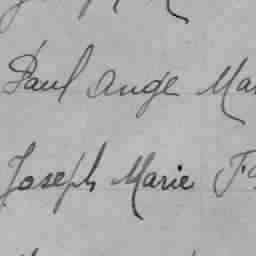 Paul Ange Ma
Joseph Marie F